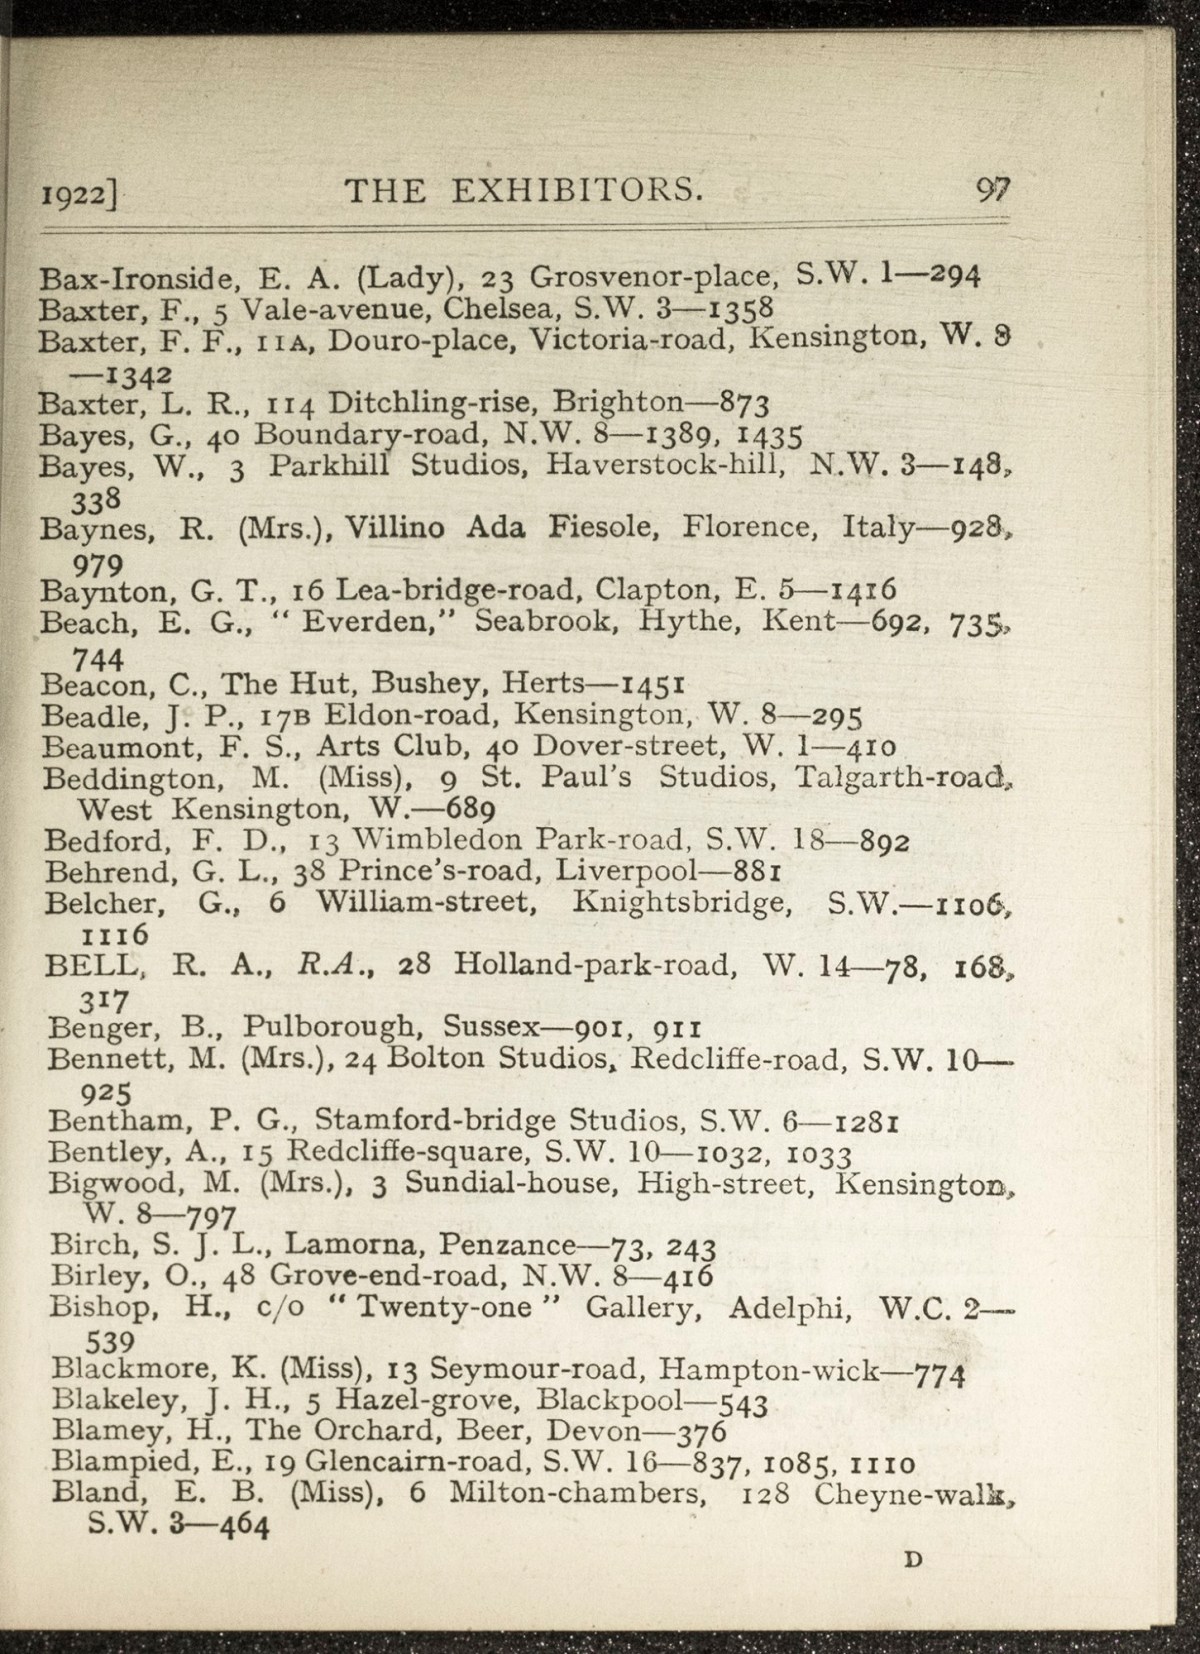 1922] THE EXHIBITORS. 97
Bax-Ironside, E. A. (Lady), 23 Grosvenor-place, S.W. 1—294
Baxter, F., 5 Vale-avenue, Chelsea, S.W. 3—1358
Baxter, F. F., 11A, Douro-place, Victoria-road, Kensington, W. 8
—1342
Baxter, L. R., 114 Ditchling-rise, Brighton—873
Bayes, G., 40 Boundary-road, N.W. 8—1389, 1435
Bayes, W., 3 Parkhill Studios, Haverstock-hill, N.W. 3—148,
338
Baynes, R. (Mrs.), Villino Ada Fiesole, Florence, Italy—928,
979
Baynton, G. T., 16 Lea-bridge-road, Clapton, E. 5—1416
Beach, E. G., “ Everden,” Seabrook, Hythe, Kent—692, 735,
744
Beacon, C., The Hut, Bushey, Herts—1451
Beadle, J. P., 17B Eldon-road, Kensington, W. 8—295
Beaumont, F. S., Arts Club, 40 Dover-street, W. 1—410
Beddington, M. (Miss), 9 St. Paul's Studios, Talgarth-road,
West Kensington, W.—689
Bedford, F. D., 13 Wimbledon Park-road, S.W. 18—892
Behrend, G. L., 38 Prince's-road, Liverpool—881
Belcher, G., 6 William-street, Knightsbridge, S.W.—1106,
1116
BELL, R. A., R.A., 28 Holland-park-road, W. 14—78, 168,
317
Benger, B., Pulborough, Sussex—901, 911
Bennett, M. (Mrs.), 24 Bolton Studios, Redcliffe-road, S.W. 10—
925
Bentham, P. G., Stamford-bridge Studios, S.W. 6—1281
Bentley, A., 15 Redcliffe-square, S.W. 10—1032, 1033
Bigwood, M. (Mrs.), 3 Sundial-house, High-street, Kensington,
W. 8—797
Birch, S. J. L., Lamorna, Penzance—73, 243
Birley, O., 48 Grove-end-road, N.W. 8—416
Bishop, H., c/o “ Twenty-one ” Gallery, Adelphi, W.C. 2—
539
Blackmore, K. (Miss), 13 Seymour-road, Hampton-wick—774
Blakeley, J. H., 5 Hazel-grove, Blackpool—543
Blamey, H., The Orchard, Beer, Devon—376
Blampied, E., 19 Glencairn-road, S.W. 16—837, 1085, 1110
Bland, E. B. (Miss), 6 Milton-chambers, 128 Cheyne-walk,
S.W. 3—464
D